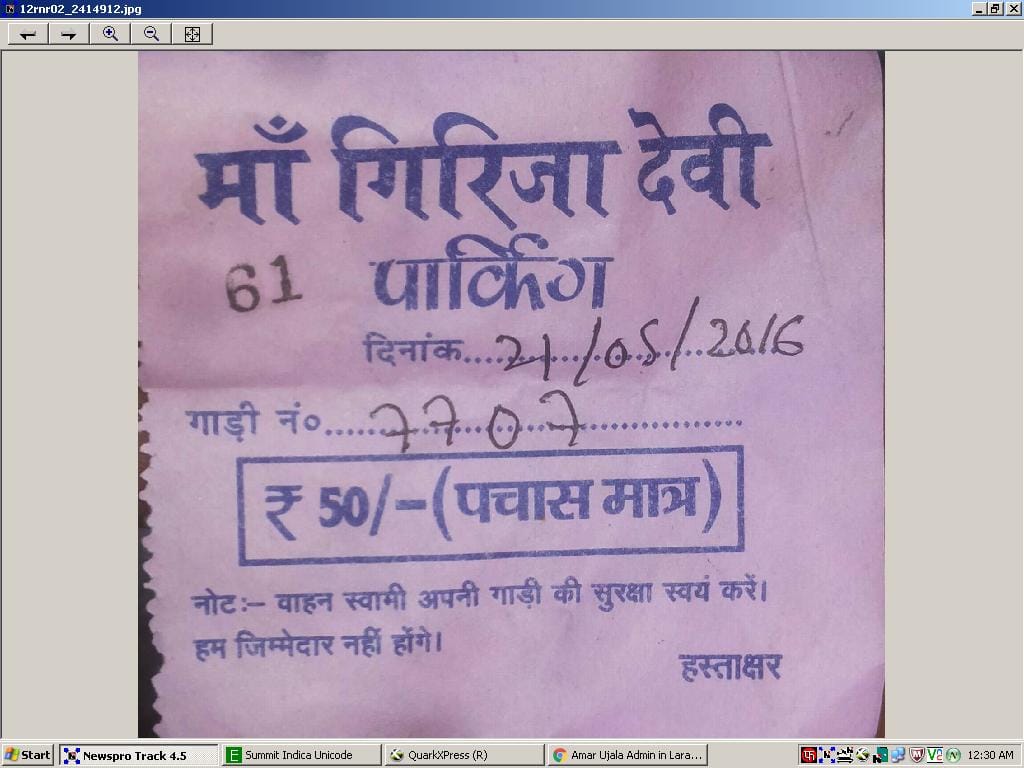 12rnr02_2414912.jpg
माँ गिरिजा देवी
61 पार्किंग
दिनांक....21/05/2016
गाड़ी नं०.....7707.................
₹ 50/-(पचास मात्र)
नोटः- वाहन स्वामी अपनी गाड़ी की सुरक्षा स्वयं करें।
हम जिम्मेदार नहीं होंगे।
हस्ताक्षर
Start Newspro Track 4.5 Summit Indica Unicode QuarkXPress (R) Amar Ujala Admin in Lara... 12:30 AM